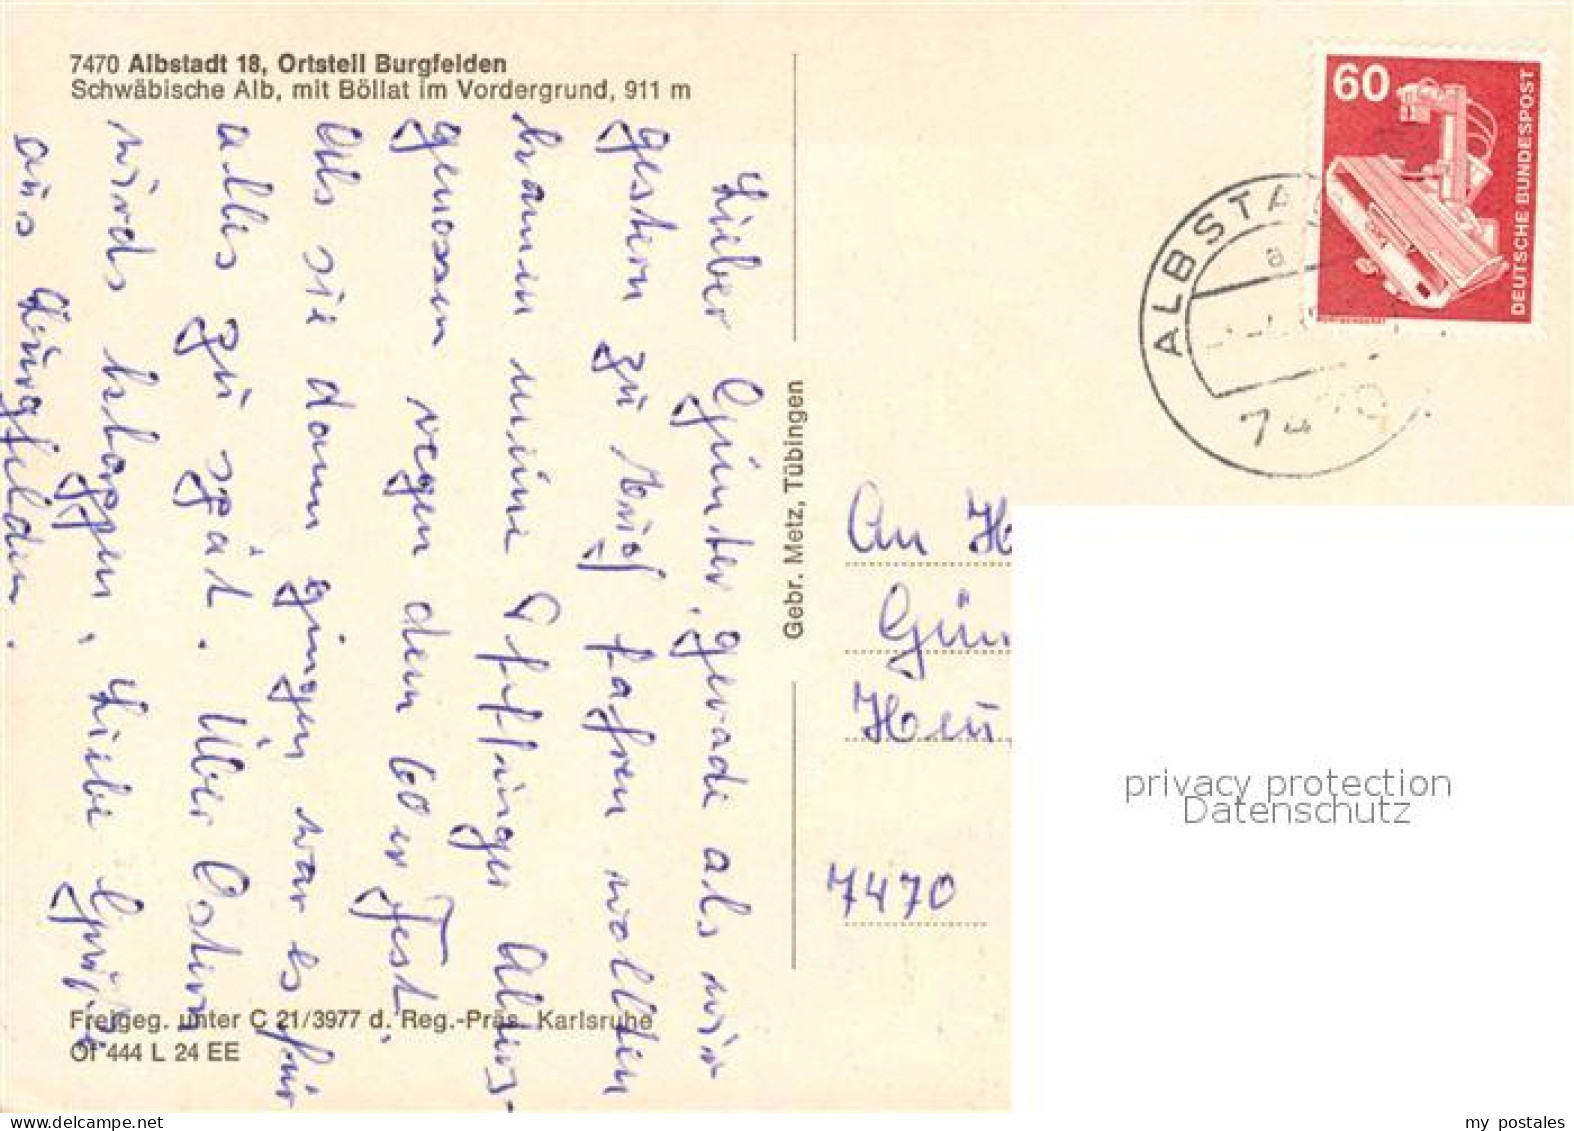 7470 Albstadt 18, Ortsteil Burgfelden
Schwäbische Alb, mit Böllat im Vordergrund, 911 m
Lieber Günter, gerade als wir
gestern zu Euch fahren wollten
kamen meine Alters-
genossen wegen dem 60er Fest.
Als sie dann gingen war es für
alles zu spät. Über Ostern
wirds klappen, Liebe Grüße
aus Burgfelden.
Gebr. Metz, Tübingen
Freigeg. unter C 21/3977 d. Reg.-Präs. Karlsruhe
Of 444 L 24 EE
60
DEUTSCHE BUNDESPOST
ALBSTA
a
7470
An H
Gün
Heu
7470
privacy protection
Datenschutz
my postales